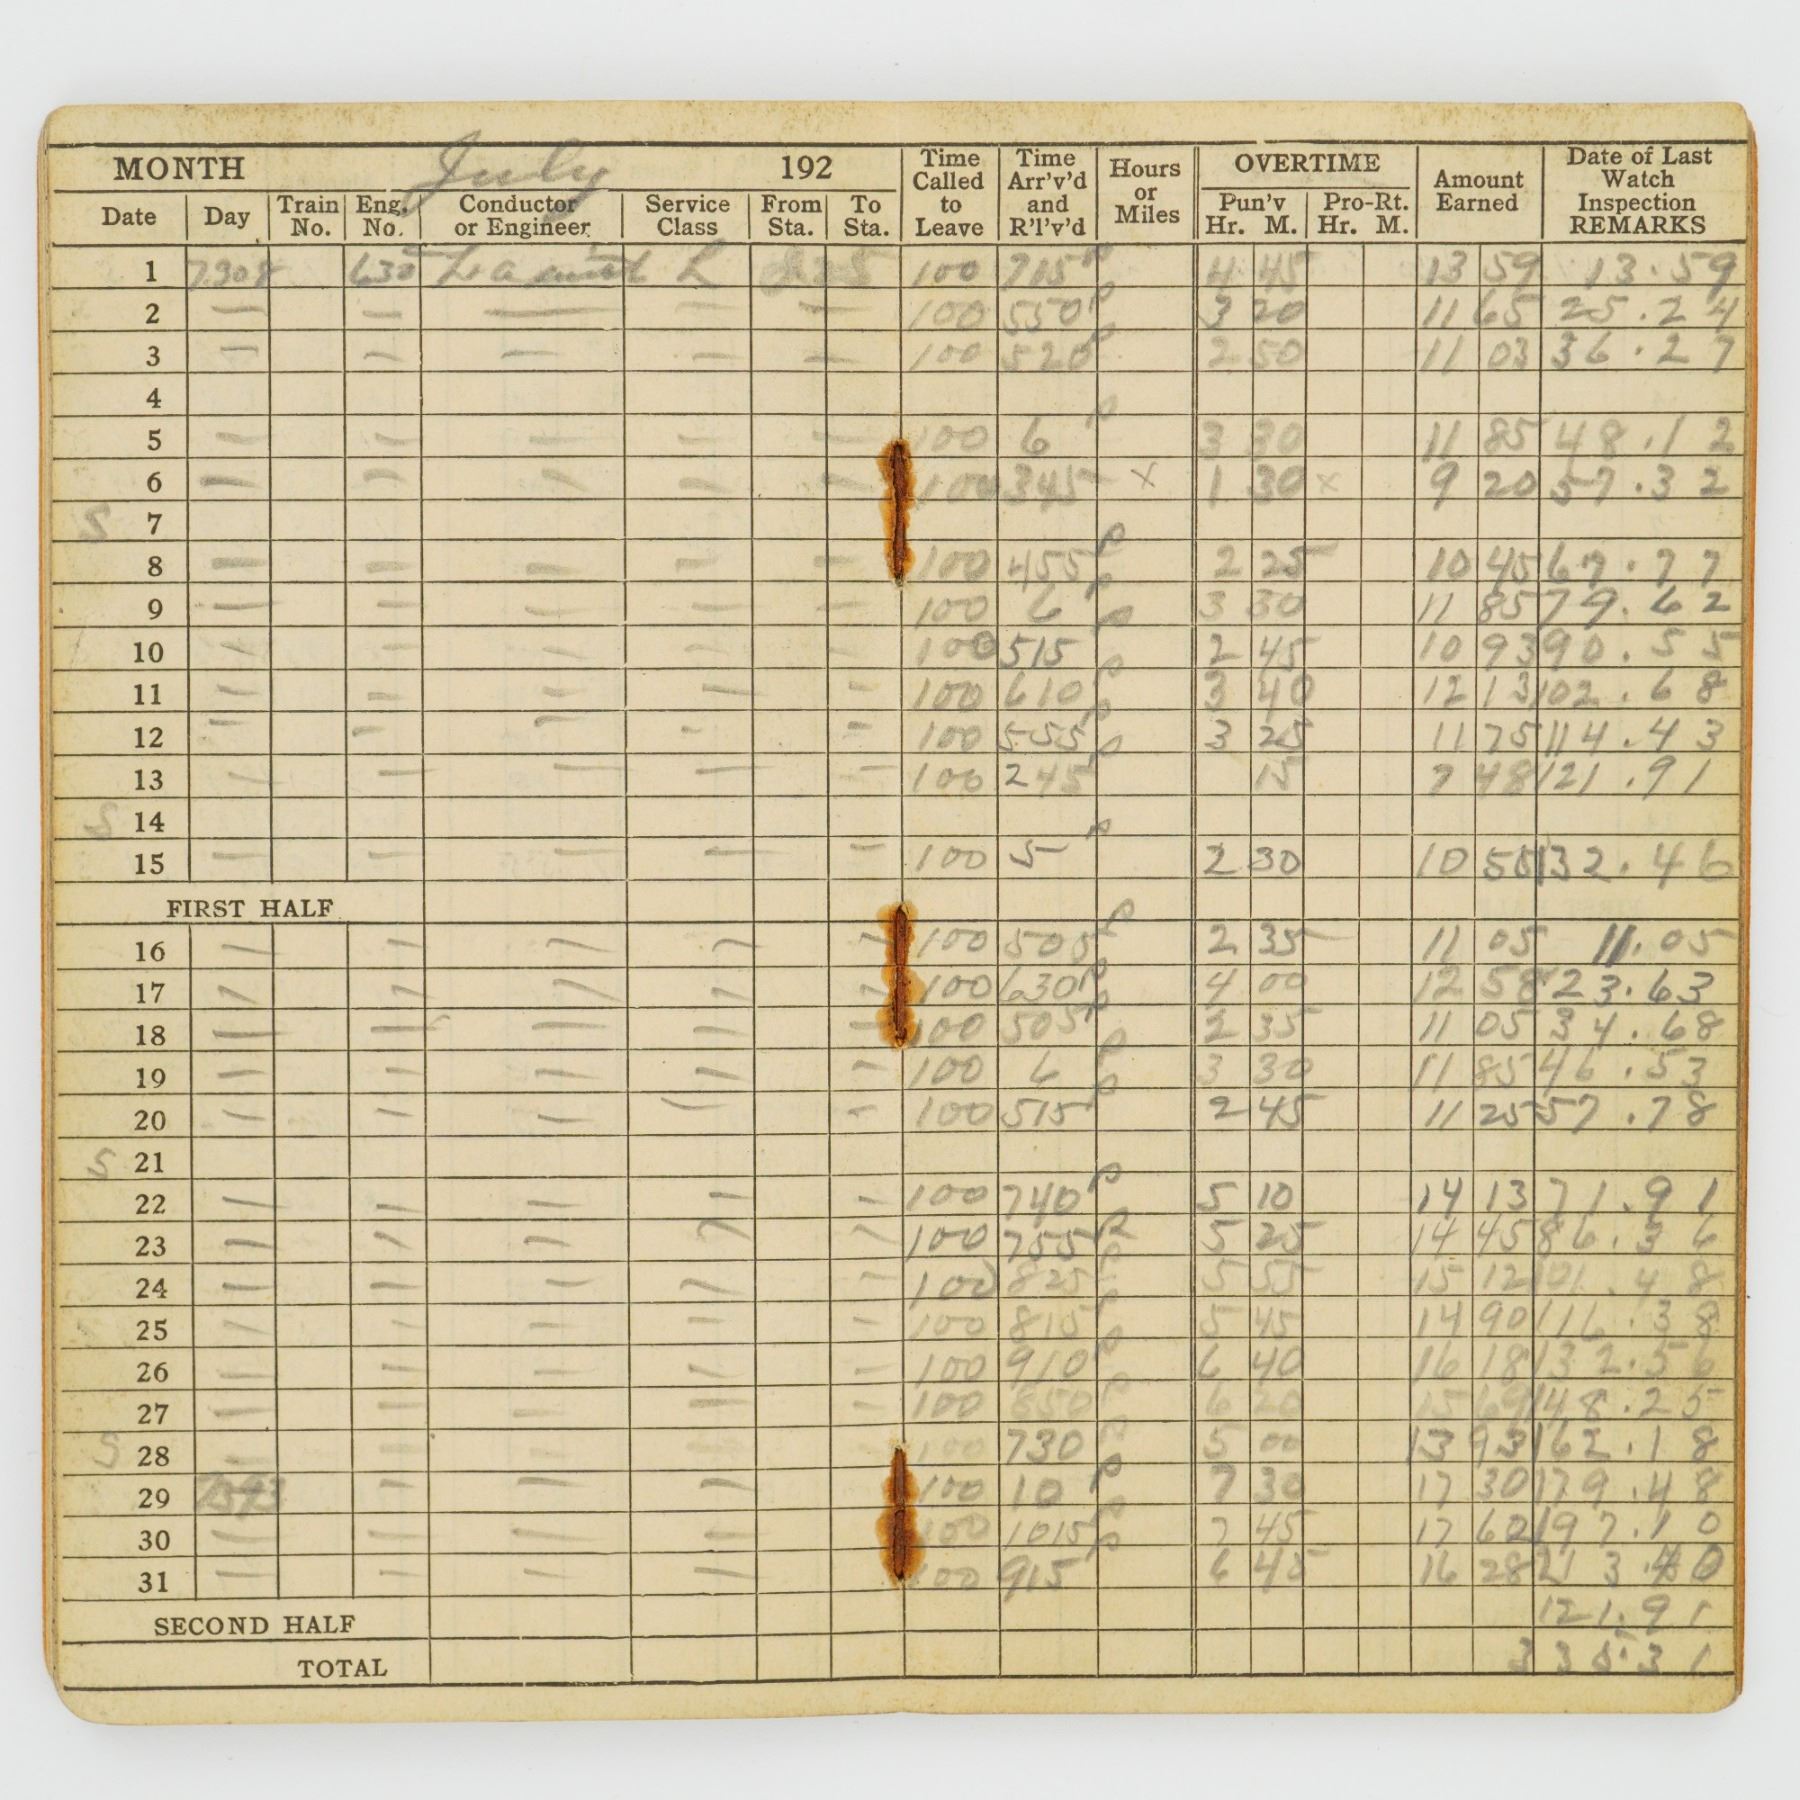 MONTH July 192 Time Called to Leave Time Arr'v'd and R'l'v'd Hours or Miles OVERTIME Amount Earned Date of Last Watch Inspection REMARKS
Date Day Train No. Eng. No. Conductor or Engineer Service Class From Sta. To Sta. Pun'v Hr. M. Pro-Rt. Hr. M.
1 7308 630 L 100 715 P 4 45 13 59 13.59
2 — — — — — 100 550 P 3 20 11 65 25.24
3 — — — — — 100 520 P 2 50 11 03 36.27
4
5 — — — — — 100 6 P 3 30 11 85 48.12
6 — — — — — 100 345 x 1 30 x 9 20 57.32
S 7
8 — — — — — 100 455 P 2 25 10 45 67.77
9 — — — — — 100 6 P 3 30 11 85 79.62
10 — — — — — 100 515 P 2 45 10 93 90.55
11 — — — — — 100 610 P 3 40 12 13 102.68
12 — — — — — 100 555 P 3 25 11 75 114.43
13 — — — — — 100 245 P 15 7 48 121.91
S 14
15 — — — — — 100 5 P 2 30 10 55 132.46
FIRST HALF
16 — — — — — 100 505 P 2 35 11 05 11.05
17 — — — — — 100 630 P 4 00 12 58 23.63
18 — — — — — 100 505 P 2 35 11 05 34.68
19 — — — — — 100 6 P 3 30 11 85 46.53
20 — — — — — 100 515 P 2 45 11 25 57.78
S 21
22 — — — — — 100 740 P 5 10 14 13 71.91
23 — — — — — 100 755 P 5 25 14 45 86.36
24 — — — — — 100 825 P 5 55 15 12 101.48
25 — — — — — 100 815 P 5 45 14 90 116.38
26 — — — — — 100 910 P 6 40 16 18 132.56
27 — — — — — 100 850 P 6 20 15 69 148.25
S 28 — — — — 100 730 P 5 00 13 93 162.18
29 7593 — — — 100 10 P 7 30 17 30 179.48
30 — — — — 100 1015 P 7 45 17 62 197.10
31 — — — — 100 915 P 6 45 16 28 213.40
121.91
SECOND HALF
TOTAL 335.31